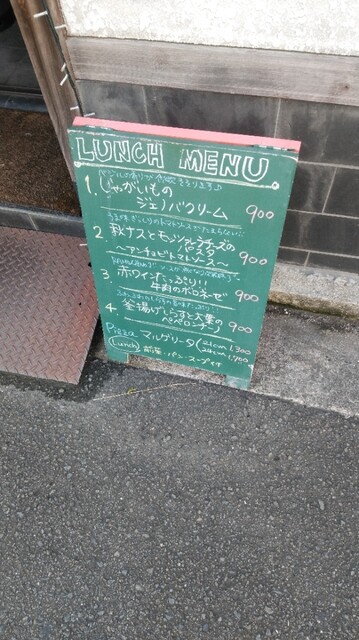 LUNCH MENU
1. じゃがいもの
ジェノバクリーム 900
2. 秋ナスとモッツァレラチーズの
パスタ
〜アンチョビトマトソース〜 900
3 赤ワインたっぷり!!
牛肉のボロネーゼ 900
4 釜揚げしらすと大葉の
ペペロンチーノ 900
Pizza マルゲリータ (21cm 1,300
24cm 1,700
Lunch 前菜・パン・スープ付